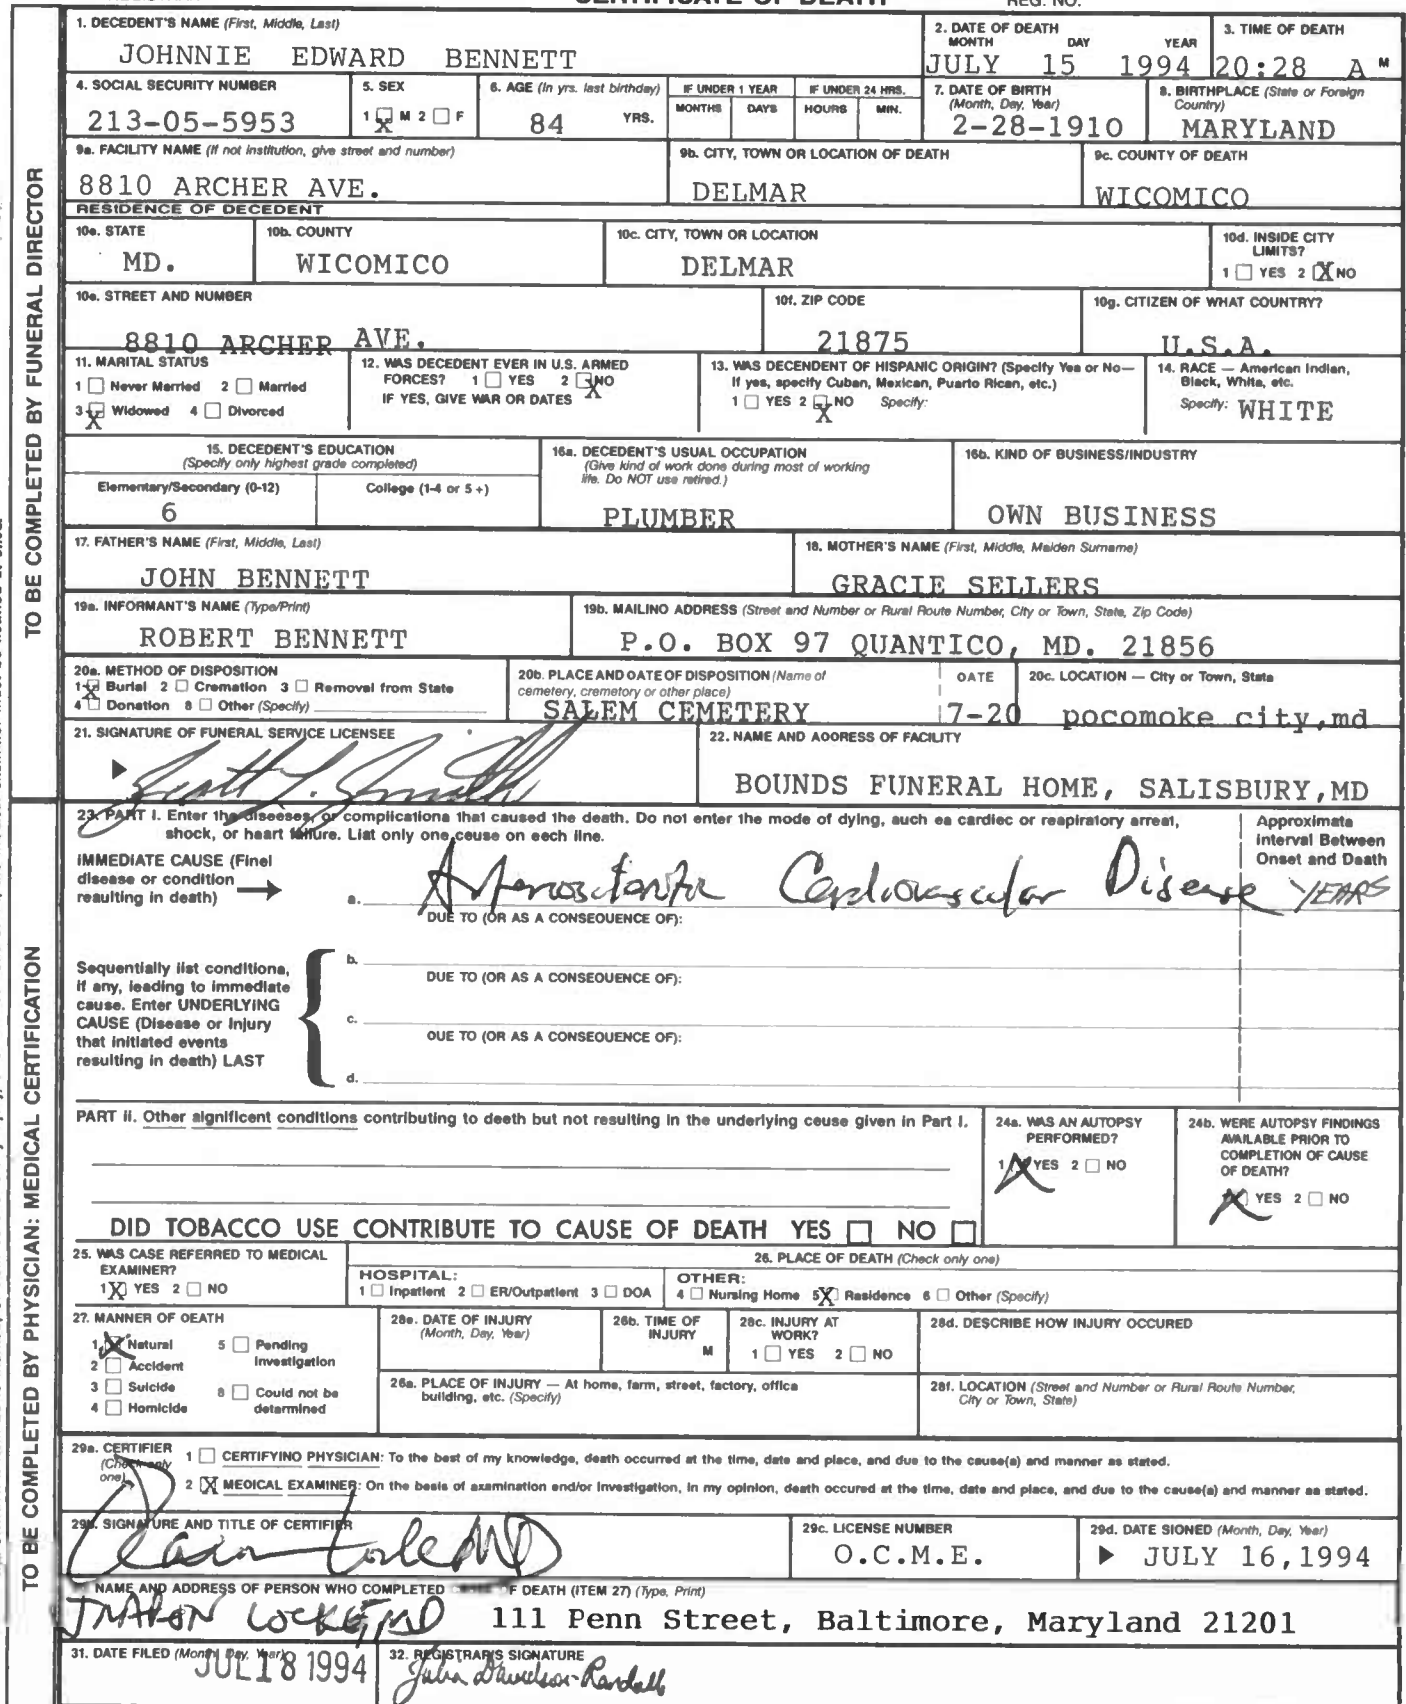 CERTIFICATE OF DEATH REG. NO.
1. DECEDENT'S NAME (First, Middle, Last)
JOHNNIE EDWARD BENNETT
2. DATE OF DEATH
MONTH DAY YEAR
JULY 15 1994
3. TIME OF DEATH
20:28 A M
4. SOCIAL SECURITY NUMBER
213-05-5953
5. SEX
1 X M 2 □ F
6. AGE (In yrs. last birthday)
84 YRS.
IF UNDER 1 YEAR
MONTHS DAYS
IF UNDER 24 HRS.
HOURS MIN.
7. DATE OF BIRTH
(Month, Day, Year)
2-28-1910
8. BIRTHPLACE (State or Foreign
Country)
MARYLAND
9a. FACILITY NAME (If not institution, give street and number)
8810 ARCHER AVE.
9b. CITY, TOWN OR LOCATION OF DEATH
DELMAR
9c. COUNTY OF DEATH
WICOMICO
RESIDENCE OF DECEDENT
10a. STATE
MD.
10b. COUNTY
WICOMICO
10c. CITY, TOWN OR LOCATION
DELMAR
10d. INSIDE CITY
LIMITS?
1 □ YES 2 X NO
10e. STREET AND NUMBER
8810 ARCHER AVE.
10f. ZIP CODE
21875
10g. CITIZEN OF WHAT COUNTRY?
U.S.A.
11. MARITAL STATUS
1 □ Never Married 2 □ Married
3 X Widowed 4 □ Divorced
12. WAS DECEDENT EVER IN U.S. ARMED
FORCES? 1 □ YES 2 X NO
IF YES, GIVE WAR OR DATES
13. WAS DECENDENT OF HISPANIC ORIGIN? (Specify Yes or No—
If yes, specify Cuban, Mexican, Puerto Rican, etc.)
1 □ YES 2 X NO Specify:
14. RACE — American Indian,
Black, White, etc.
Specify: WHITE
15. DECEDENT'S EDUCATION
(Specify only highest grade completed)
Elementary/Secondary (0-12) College (1-4 or 5 +)
6
16a. DECEDENT'S USUAL OCCUPATION
(Give kind of work done during most of working
life. Do NOT use retired.)
PLUMBER
16b. KIND OF BUSINESS/INDUSTRY
OWN BUSINESS
17. FATHER'S NAME (First, Middle, Last)
JOHN BENNETT
18. MOTHER'S NAME (First, Middle, Maiden Surname)
GRACIE SELLERS
19a. INFORMANT'S NAME (Type/Print)
ROBERT BENNETT
19b. MAILING ADDRESS (Street and Number or Rural Route Number, City or Town, State, Zip Code)
P.O. BOX 97 QUANTICO, MD. 21856
20a. METHOD OF DISPOSITION
1 X Burial 2 □ Cremation 3 □ Removal from State
4 □ Donation 8 □ Other (Specify)
20b. PLACE AND DATE OF DISPOSITION (Name of
cemetery, crematory or other place)
SALEM CEMETERY
DATE
7-20
20c. LOCATION — City or Town, State
pocomoke city,md
21. SIGNATURE OF FUNERAL SERVICE LICENSEE
Scott L. Smith
22. NAME AND ADDRESS OF FACILITY
BOUNDS FUNERAL HOME, SALISBURY,MD
TO BE COMPLETED BY FUNERAL DIRECTOR
23. PART I. Enter the diseases, or complications that caused the death. Do not enter the mode of dying, such as cardiac or respiratory arrest,
shock, or heart failure. List only one cause on each line.
Approximate
Interval Between
Onset and Death
IMMEDIATE CAUSE (Final
disease or condition
resulting in death)
a. Cardiovascular Disease YEARS
DUE TO (OR AS A CONSEQUENCE OF):
Sequentially list conditions,
if any, leading to immediate
cause. Enter UNDERLYING
CAUSE (Disease or Injury
that initiated events
resulting in death) LAST
b.
DUE TO (OR AS A CONSEQUENCE OF):
c.
DUE TO (OR AS A CONSEQUENCE OF):
d.
PART II. Other significant conditions contributing to death but not resulting in the underlying cause given in Part I.
DID TOBACCO USE CONTRIBUTE TO CAUSE OF DEATH YES □ NO □
24a. WAS AN AUTOPSY
PERFORMED?
1 X YES 2 □ NO
24b. WERE AUTOPSY FINDINGS
AVAILABLE PRIOR TO
COMPLETION OF CAUSE
OF DEATH?
X YES 2 □ NO
25. WAS CASE REFERRED TO MEDICAL
EXAMINER?
1 X YES 2 □ NO
26. PLACE OF DEATH (Check only one)
HOSPITAL:
1 □ Inpatient 2 □ ER/Outpatient 3 □ DOA
OTHER:
4 □ Nursing Home 5 X Residence 6 □ Other (Specify)
27. MANNER OF DEATH
1 X Natural 5 □ Pending
2 □ Accident Investigation
3 □ Suicide 8 □ Could not be
4 □ Homicide determined
28a. DATE OF INJURY
(Month, Day, Year)
28b. TIME OF
INJURY
M
28c. INJURY AT
WORK?
1 □ YES 2 □ NO
28d. DESCRIBE HOW INJURY OCCURED
28e. PLACE OF INJURY — At home, farm, street, factory, office
building, etc. (Specify)
28f. LOCATION (Street and Number or Rural Route Number,
City or Town, State)
29a. CERTIFIER
(Check only
one)
1 □ CERTIFYING PHYSICIAN: To the best of my knowledge, death occurred at the time, date and place, and due to the cause(s) and manner as stated.
2 X MEDICAL EXAMINER: On the basis of examination and/or investigation, in my opinion, death occured at the time, date and place, and due to the cause(s) and manner as stated.
29b. SIGNATURE AND TITLE OF CERTIFIER
Locke MD
29c. LICENSE NUMBER
O.C.M.E.
29d. DATE SIGNED (Month, Day, Year)
JULY 16,1994
NAME AND ADDRESS OF PERSON WHO COMPLETED OF DEATH (ITEM 27) (Type, Print)
LOCKE, MD 111 Penn Street, Baltimore, Maryland 21201
31. DATE FILED (Month, Day, Year)
JUL 18 1994
32. REGISTRAR'S SIGNATURE
Julia Davidson-Randall
TO BE COMPLETED BY PHYSICIAN: MEDICAL CERTIFICATION